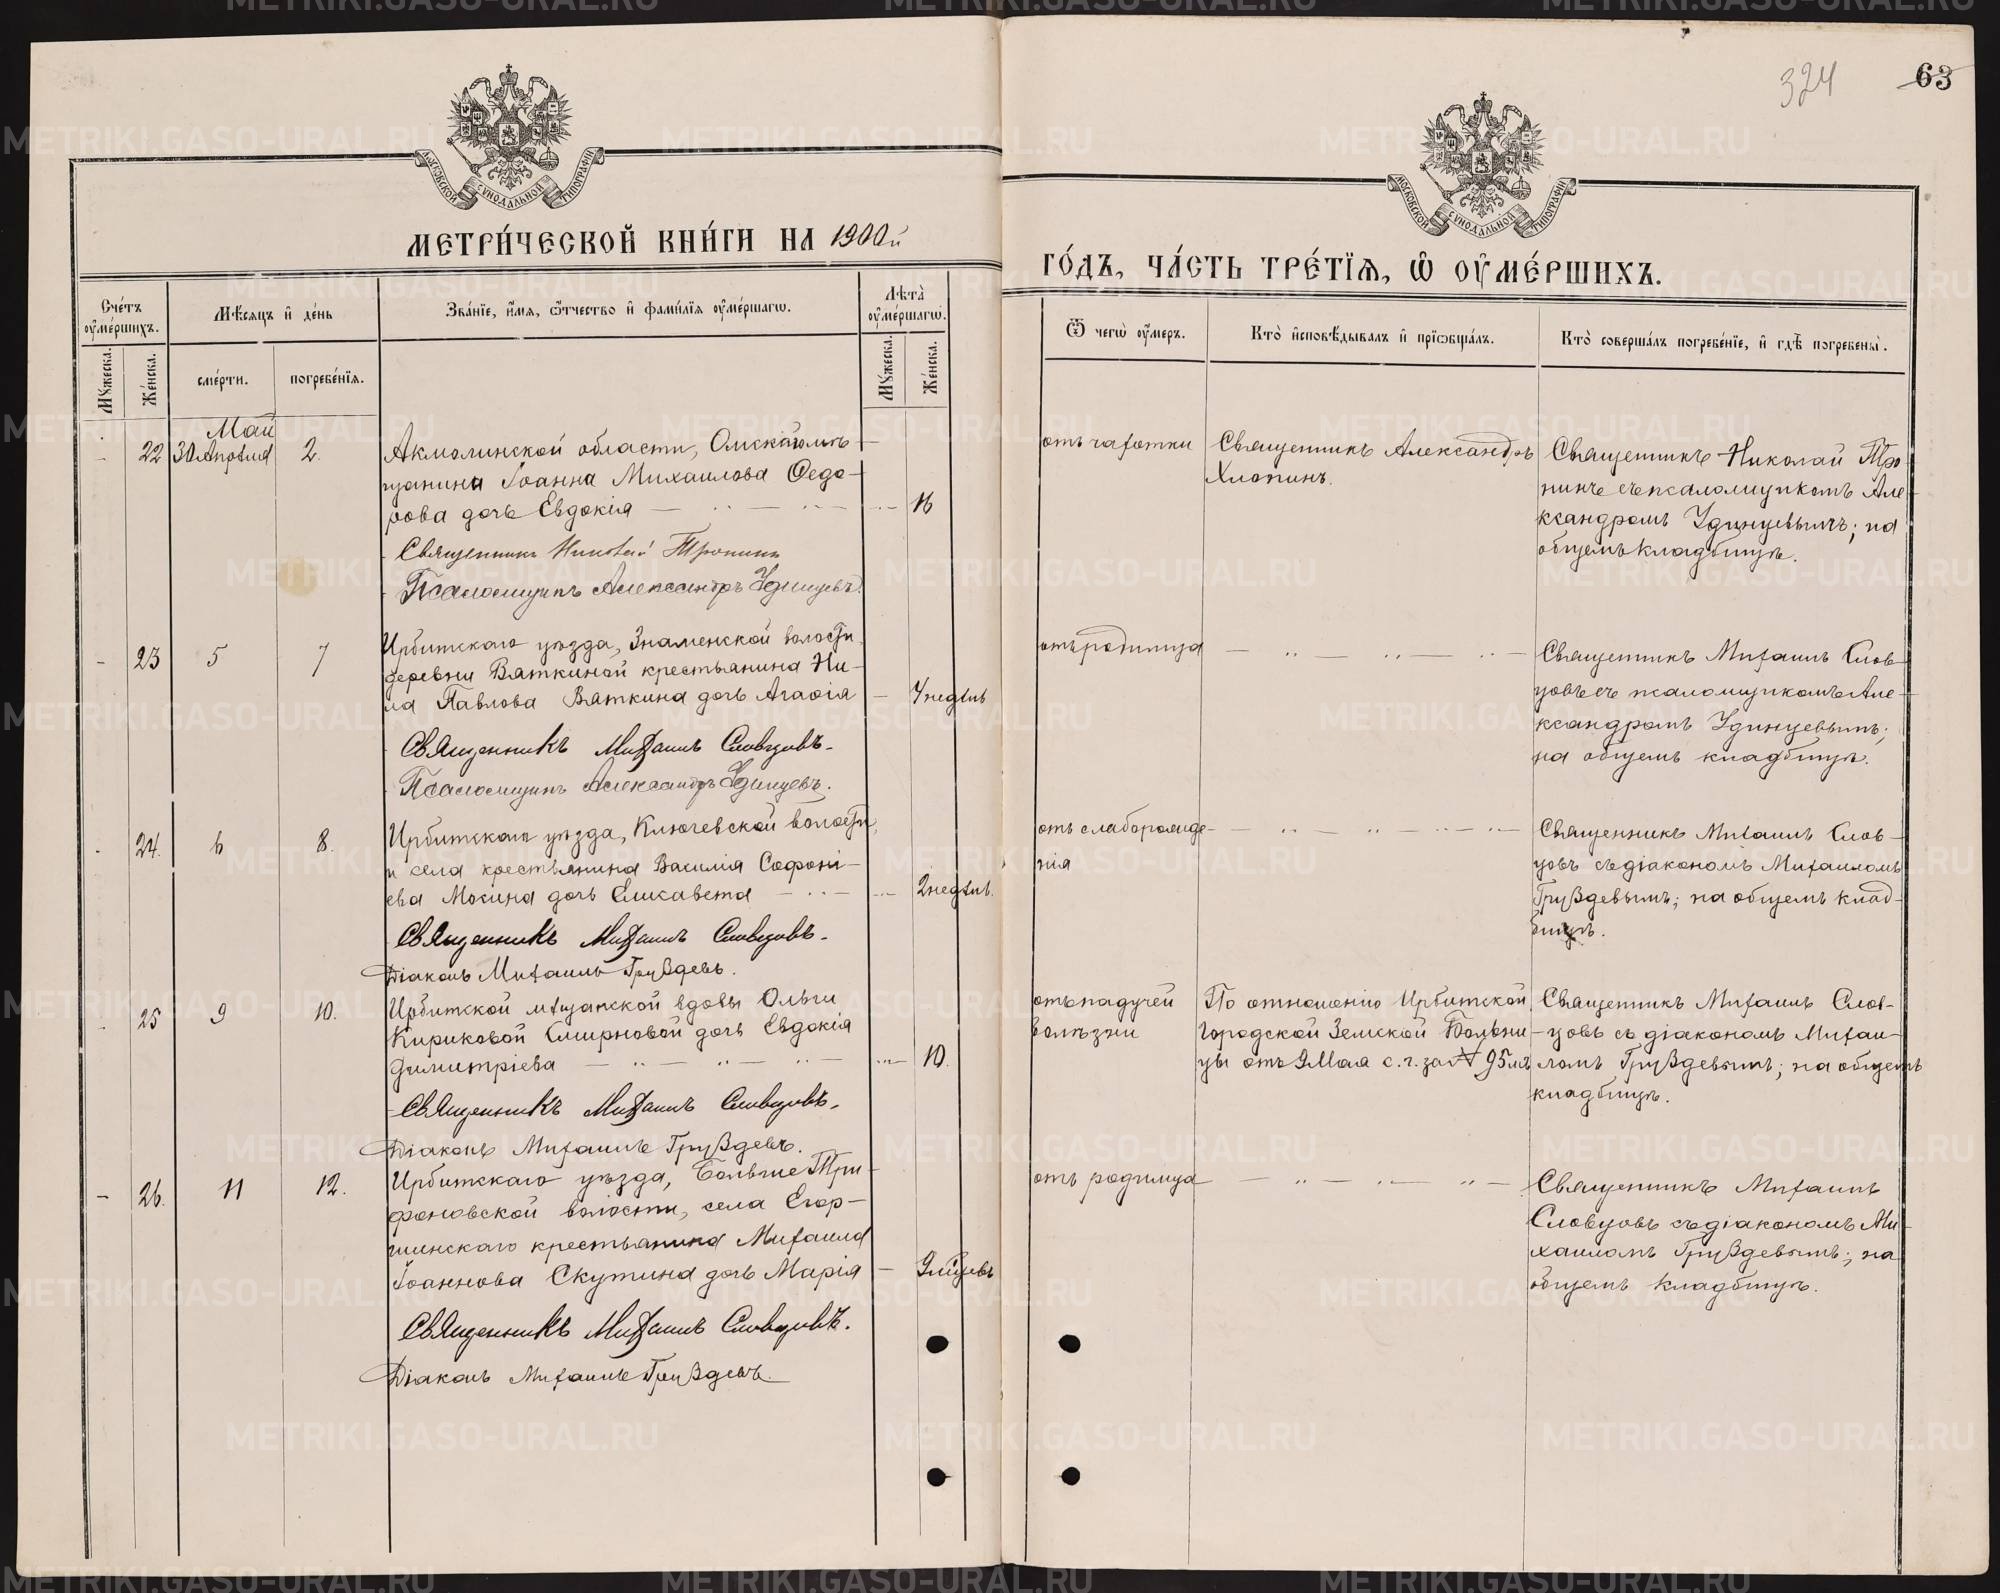 324
63
МОСКОВСКОЙ СѴНОДАЛЬНОЙ ТИПОГРАФІИ
МОСКОВСКОЙ СѴНОДАЛЬНОЙ ТИПОГРАФІИ
МЕТРИ́ЧЕСКОЙ КНИ́ГИ НА 1900й
ГО́ДЪ, ЧА́СТЬ ТРЕ́ТІЯ, Ѡ ОУМЕ́РШИХЪ.
Сче́тъ оумершихъ.
Мужеска.
Же́нска.
Мѣ́сяцъ и де́нь
сме́рти.
погребе́нїя.
Зва́нїе, и́мя, ѻ́тчество и фами́лїя оуме́ршагѡ.
Лѣта̀ оуме́ршагѡ.
Мужеска.
Же́нска.
Ѿ чегѡ̀ оу́меръ.
Кто̀ исповѣ́дывалъ и прїѡбща́лъ.
Кто̀ соверша́лъ погребе́нїе, и гдѣ̀ погребены̀.
Май
22 30 Апрѣля 2.
Акмолинской области, Омск
щанина Іоанна Михаилова Ѳедо-
рова дочь Евдокія
16
Священникъ Николай Тронинъ
Псаломщикъ Александръ Удинцевъ.
отъ чахотки
Священникъ Александръ
Хлопинъ.
Священникъ Николай Тро-
нинъ съ псаломщикомъ Але-
ксандромъ Удинцевымъ; на
общемъ кладбищѣ.
- 23 5 7
Ирбитскаго уѣзда, Знаменской волости
деревни Вяткиной крестьянина Ни-
ла Павлова Вяткина дочь Агаѳія
4 недѣль
Священникъ Михаилъ Словцовъ.
Псаломщикъ Александръ Удинцевъ.
отъ родимца
Священникъ Михаилъ Слов-
цовъ съ псаломщикомъ Але-
ксандромъ Удинцевымъ;
на общемъ кладбищѣ.
- 24. 6 8.
Ирбитскаго уѣзда, Ключевской волости
и села крестьянина Василія Софоні-
ева Мокина дочь Елисавета
2 недѣль.
Священникъ Михаилъ Словцовъ.
Діаконъ Михаилъ Груздевъ.
отъ слаборожде-
нія
Священникъ Михаилъ Слов-
цовъ съ діакономъ Михаиломъ
Груздевымъ; на общемъ клад-
бищѣ.
25 9 10.
Ирбитской мѣщанской вдовы Ольги
Кириковой Смирновой дочь Евдокія
Димитріева
10.
Священникъ Михаилъ Словцовъ.
Діаконъ Михаилъ Груздевъ.
отъ падучей
болѣзни
По отношенію Ирбитской
городской Земской Больни-
цы отъ 9 Мая с.г. за №
Священникъ Михаилъ Слов-
цовъ съ діакономъ Михаи-
ломъ Груздевымъ; на общемъ
кладбищѣ.
- 26. 11 12.
Ирбитскаго уѣзда, Больше Три-
фоновской волости, села Егор-
шинскаго крестьянина Михаила
Іоаннова Скутина дочь Марія
9 мѣсяцевъ
Священникъ Михаилъ Словцовъ.
Діаконъ Михаилъ Груздевъ.
отъ родимца
Священникъ Михаилъ
Словцовъ съ діакономъ Ми-
хаиломъ Груздевымъ; на
общемъ кладбищѣ.
METRIKI.GASO-URAL.RU